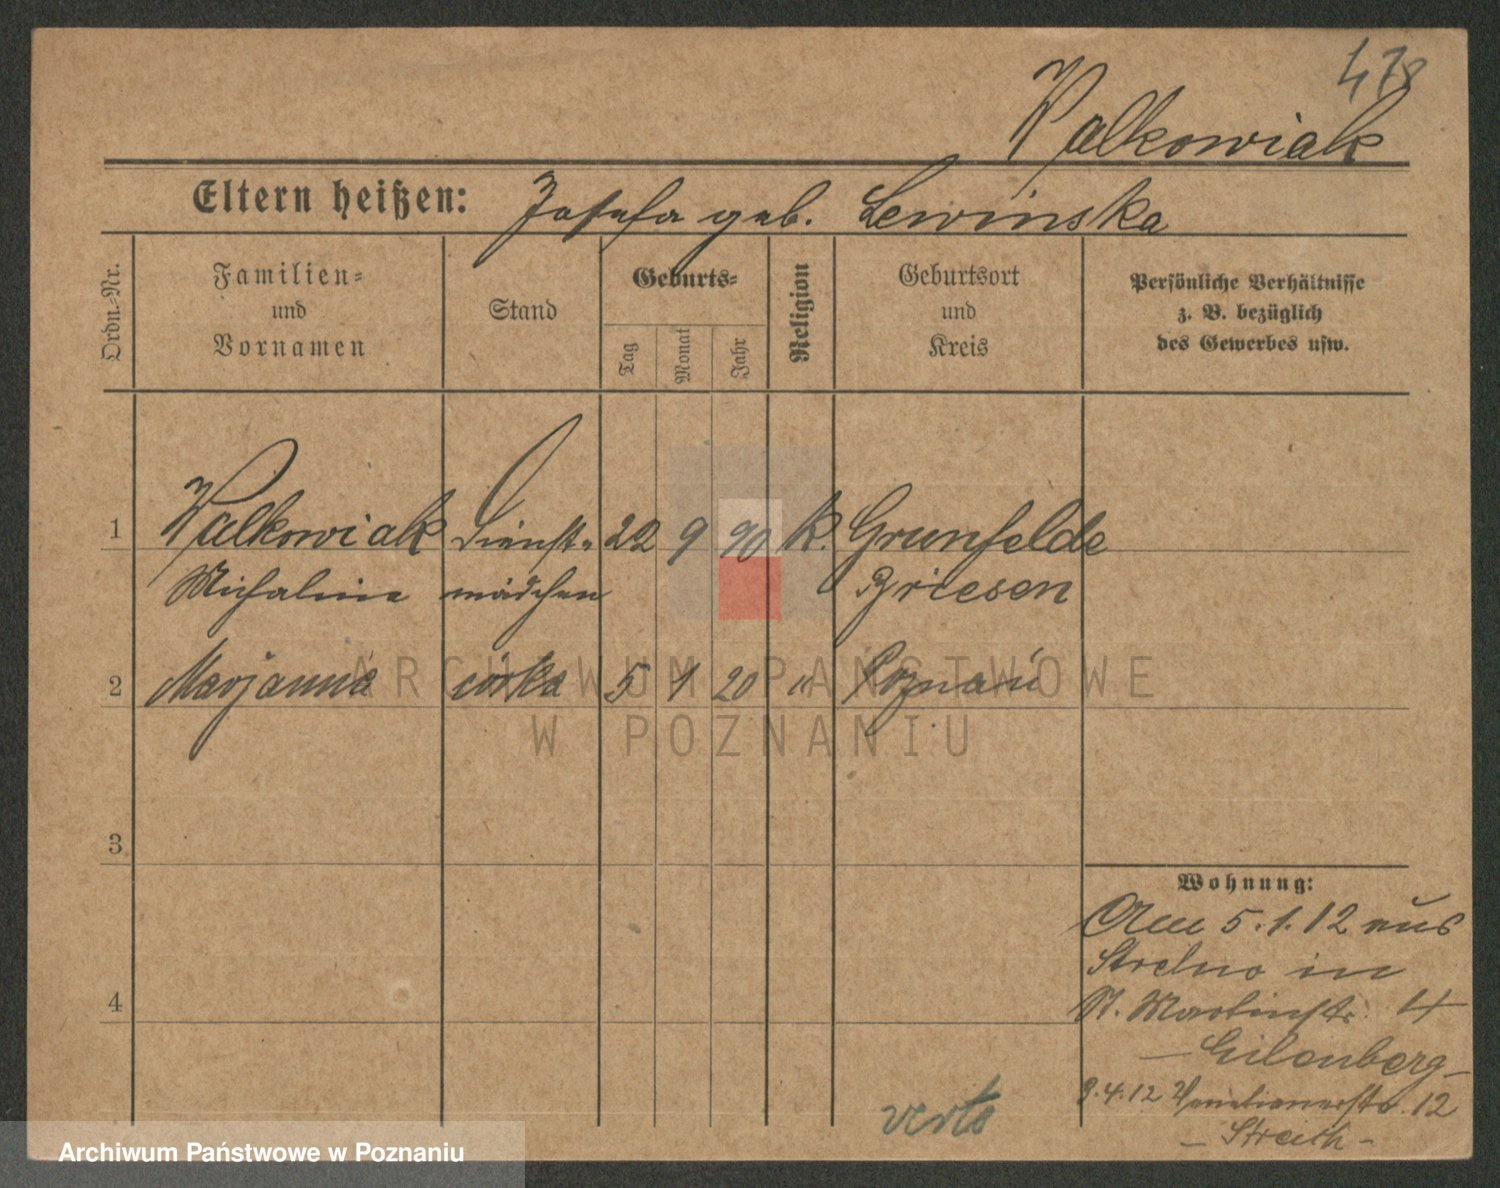 478
Walkowiak
Eltern heißen: Josefa geb. Lewinska
Ordn.-Nr.
Familien-
und
Vornamen
Stand
Geburts-
Tag
Monat
Jahr
Religion
Geburtsort
und
Kreis
Persönliche Verhältnisse
z. B. bezüglich
des Gewerbes usw.
1 Walkowiak Dienst- 22 9 90 k. Grunfelde
Michaline mädchen Briesen
2 Marjanna córka 5 1 20 " Poznań
3
4
Wohnung:
Am 5.1.12 aus
Strelno in
St. Martinstr. 4
- Eilenberg -
9.4.12 Venetianerstr. 12
- Streich -
verte
ARCHIWUM PAŃSTWOWE
W POZNANIU
Archiwum Państwowe w Poznaniu